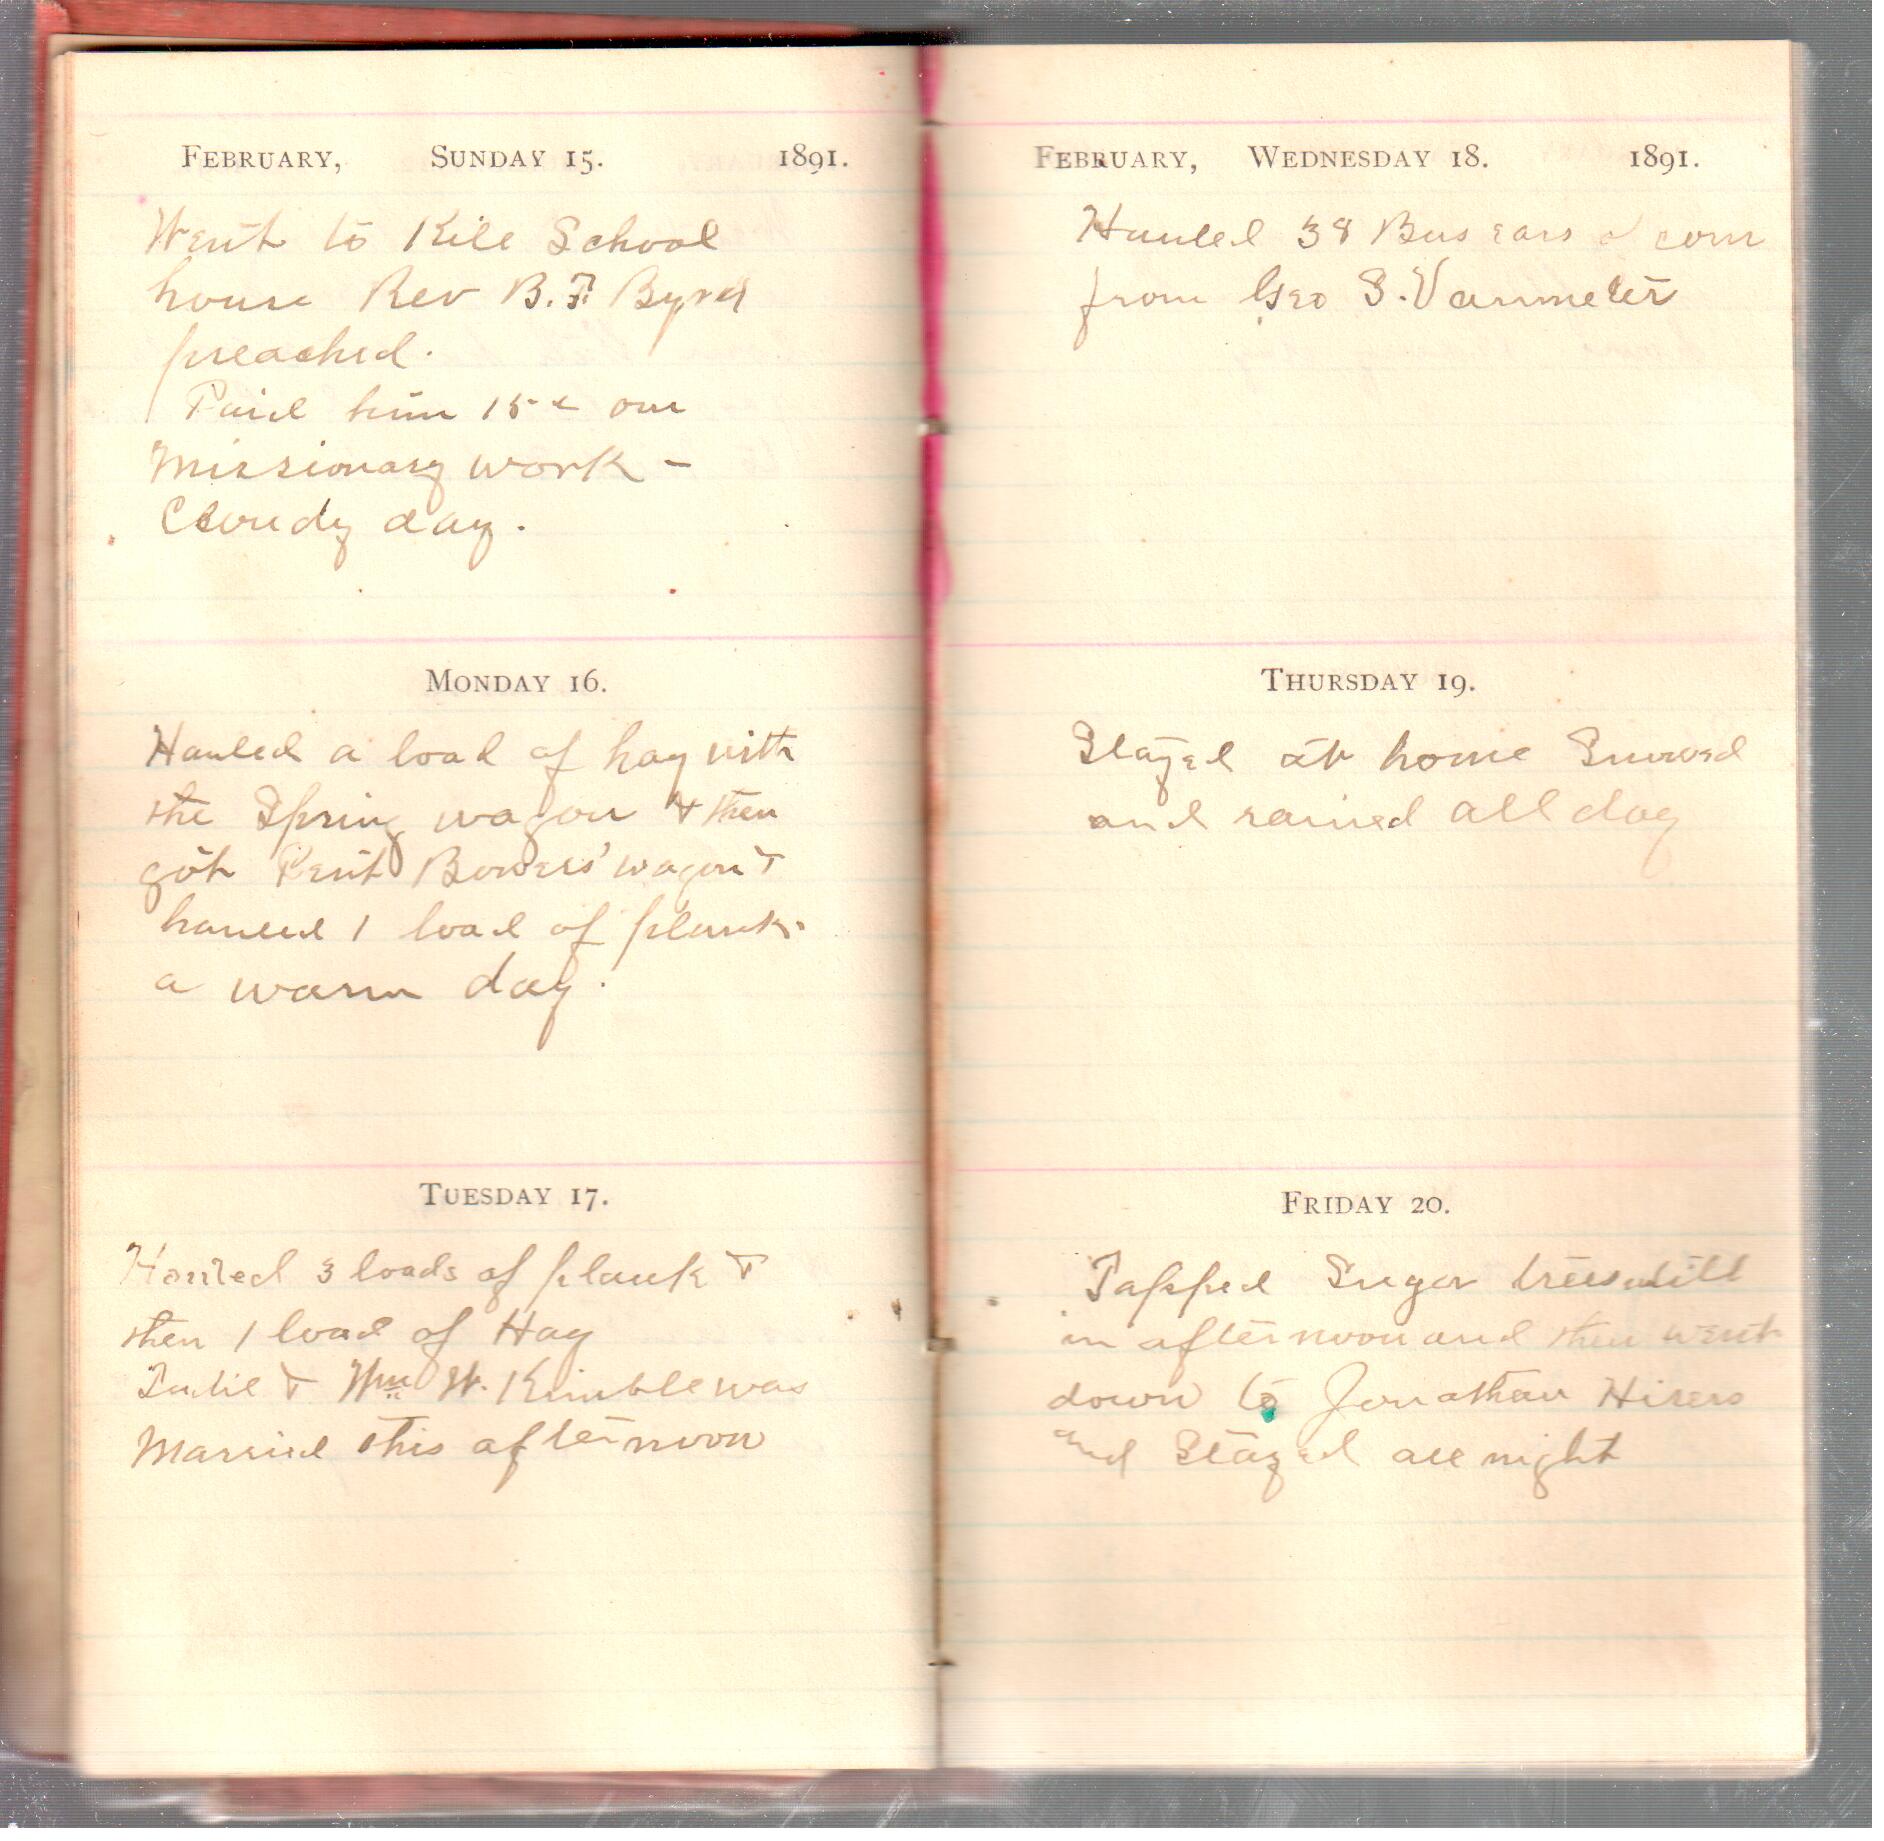 FEBRUARY, SUNDAY 15. 1891.
Went to Kile School
house Rev B. F. Byrd
preached.
Paid him 15 c on
Missionary work –
Cloudy day.
MONDAY 16.
Hauled a load of hay with
the Spring wagon & then
got Bowers' wagon &
hauled 1 load of plank.
a warm day.
TUESDAY 17.
Hauled 3 loads of plank &
then 1 load of Hay
& Wm W. Kimble was
Married this afternoon
FEBRUARY, WEDNESDAY 18. 1891.
Hauled 38 Bus ears of corn
from Geo S. Vanmeter
THURSDAY 19.
Stayed at home Snowed
and rained all day
FRIDAY 20.
Tapped Sugar trees till
in afternoon and then went
down to Jonathan Hisers
and Stayed all night